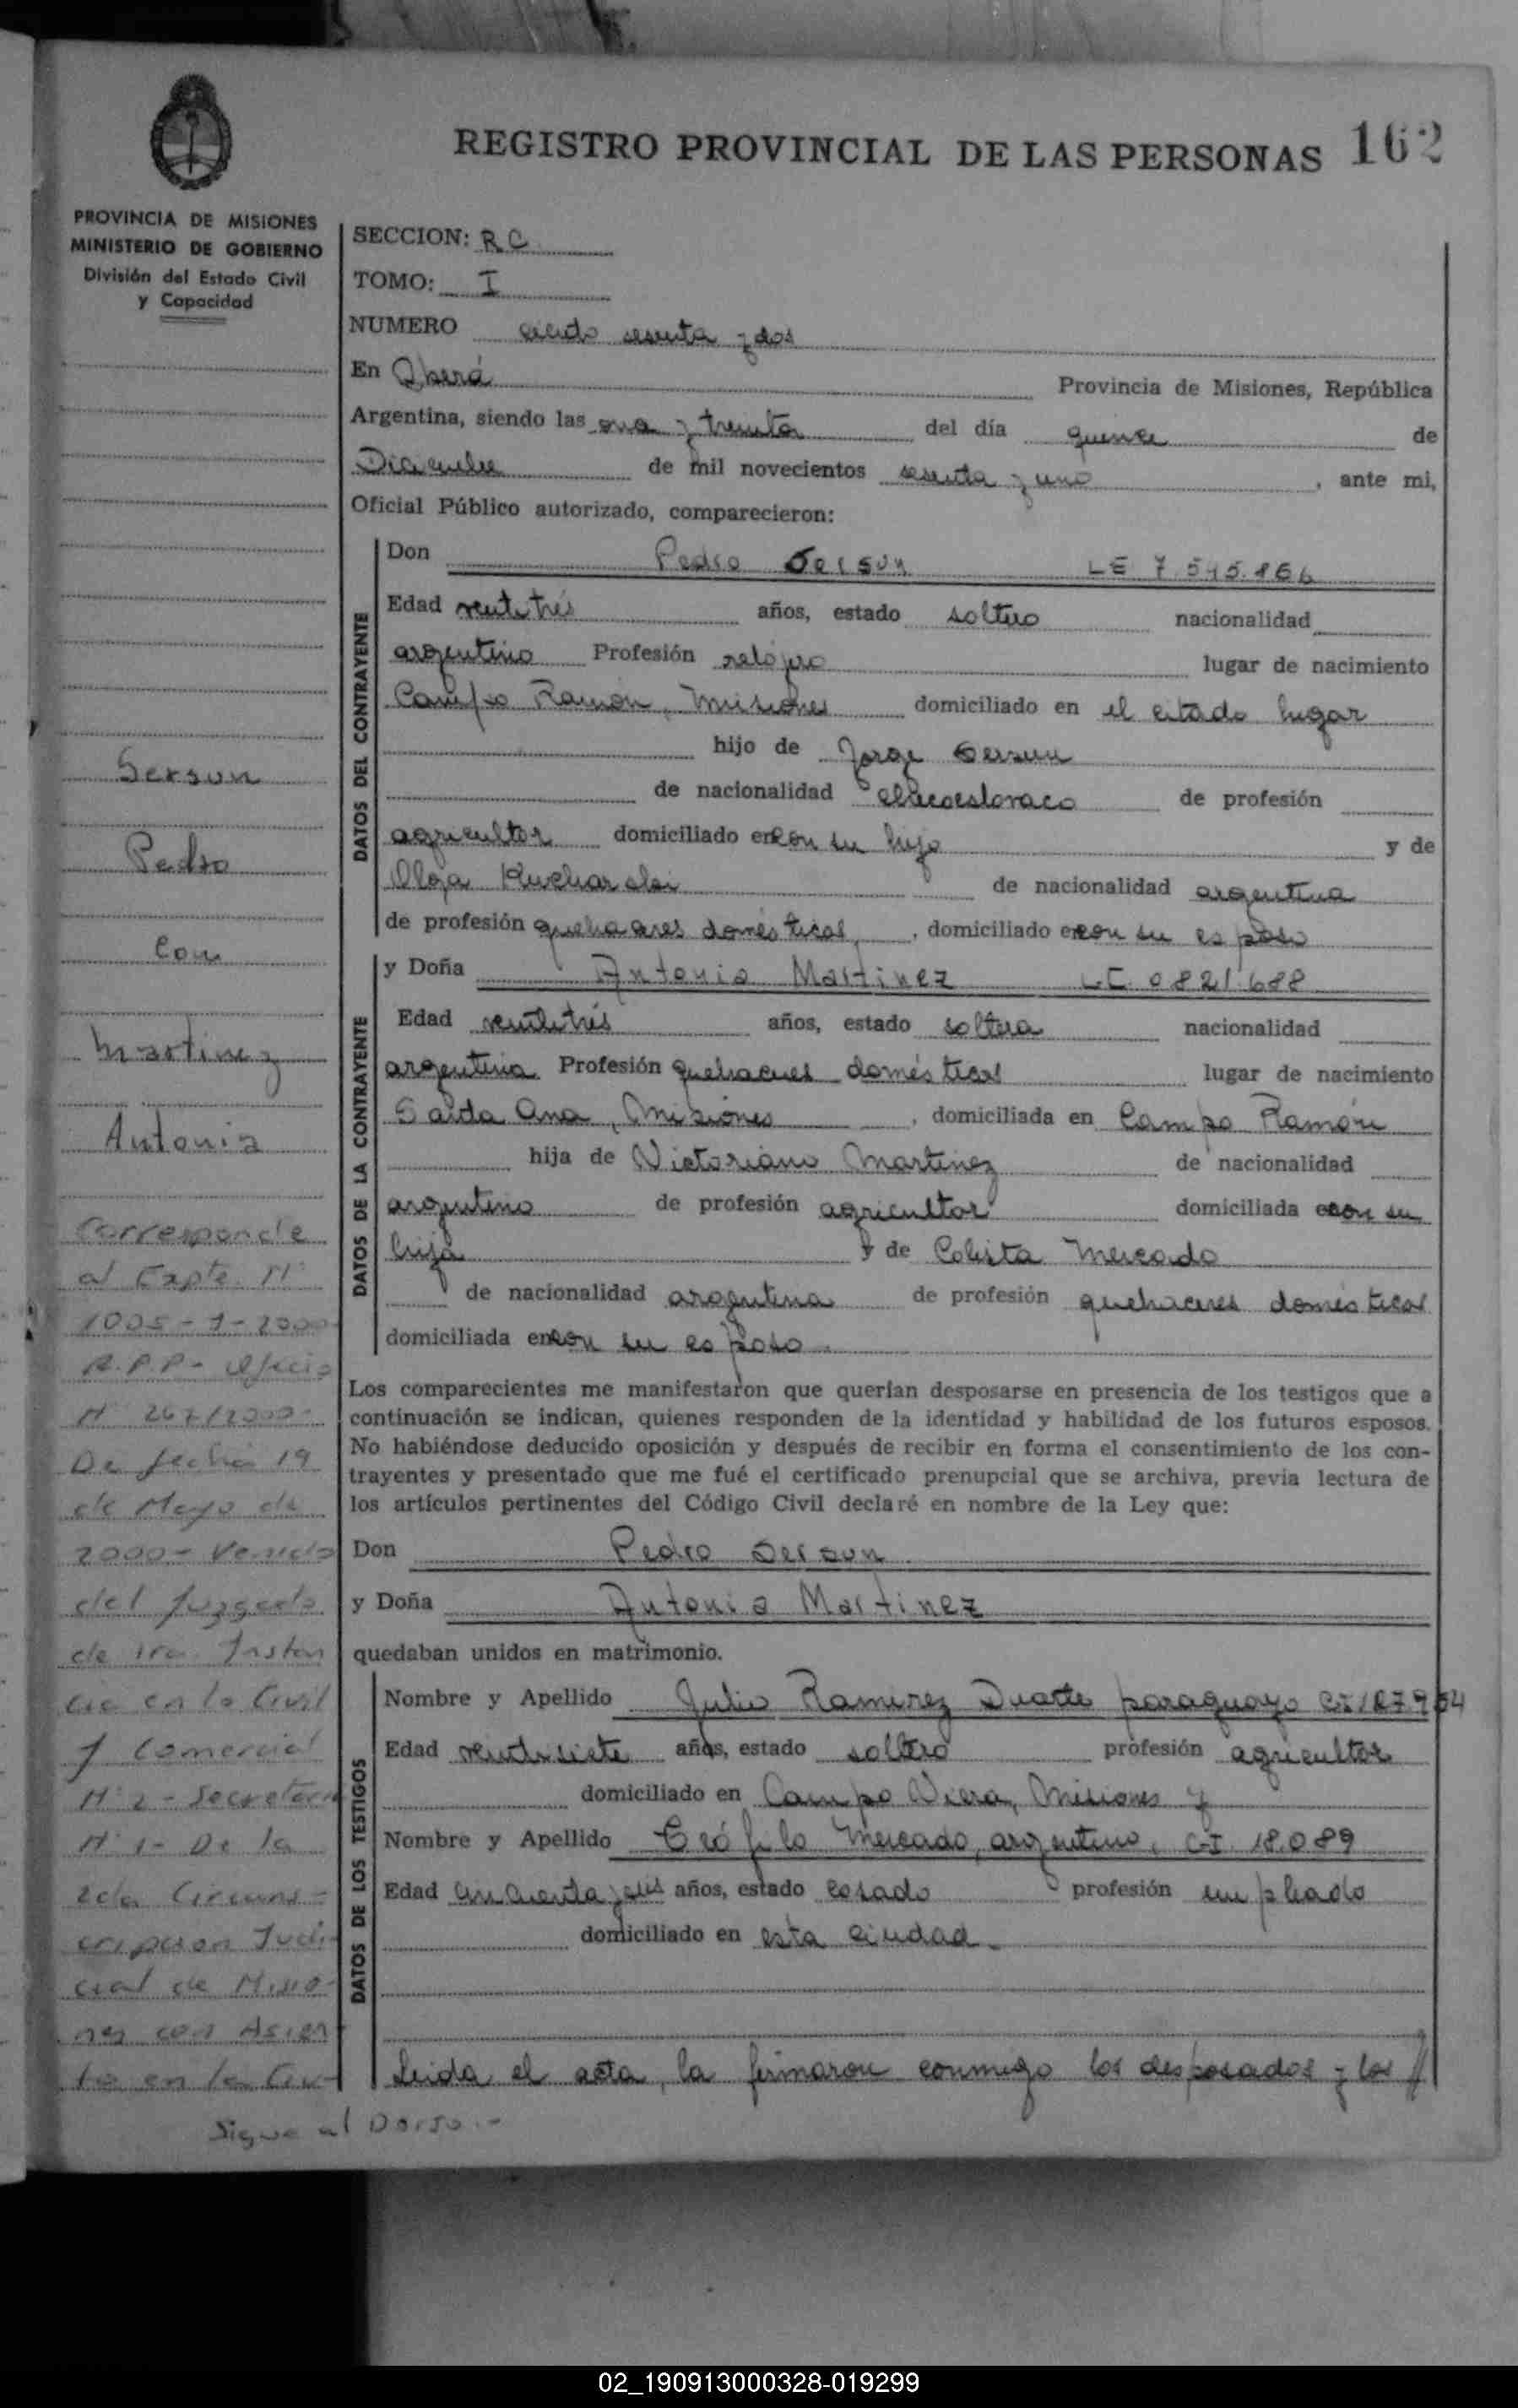 REGISTRO PROVINCIAL DE LAS PERSONAS 162
PROVINCIA DE MISIONES
MINISTERIO DE GOBIERNO
División del Estado Civil
y Capacidad
SECCION: R C
TOMO: I
NUMERO ciento sesenta y dos
En Oberá Provincia de Misiones, República
Argentina, siendo las once y treinta del día quince de
Diciembre de mil novecientos sesenta y uno, ante mi,
Oficial Público autorizado, comparecieron:
DATOS DEL CONTRAYENTE
Don Pedro Sersun LE 7.545.166
Edad veintitrés años, estado soltero nacionalidad
argentino Profesión relojero lugar de nacimiento
Campo Ramón, Misiones domiciliado en el citado lugar
hijo de Jorge Sersun
de nacionalidad checoeslovaco de profesión
agricultor domiciliado en con su hijo y de
Olga Kucharski de nacionalidad argentina
de profesión quehaceres domésticos, domiciliado en con su esposo
DATOS DE LA CONTRAYENTE
y Doña Antonia Martinez L.C. 0821.688
Edad veintitrés años, estado soltera nacionalidad
argentina Profesión quehaceres domésticos lugar de nacimiento
Santa Ana, Misiones, domiciliada en Campo Ramón
hija de Victoriano Martinez de nacionalidad
argentino de profesión agricultor domiciliada en con su
hija y de Celista Mercado
de nacionalidad argentina de profesión quehaceres domésticos
domiciliada en con su esposo.
Los comparecientes me manifestaron que querían desposarse en presencia de los testigos que a
continuación se indican, quienes responden de la identidad y habilidad de los futuros esposos.
No habiéndose deducido oposición y después de recibir en forma el consentimiento de los con-
trayentes y presentado que me fué el certificado prenupcial que se archiva, previa lectura de
los artículos pertinentes del Código Civil declaré en nombre de la Ley que:
Don Pedro Sersun
y Doña Antonia Martinez
quedaban unidos en matrimonio.
DATOS DE LOS TESTIGOS
Nombre y Apellido Julio Ramirez Duarte paraguayo
Edad veintisiete años, estado soltero profesión agricultor
domiciliado en Campo Viera, Misiones y
Nombre y Apellido Teófilo Mercado, argentino, C.I. 18.089
Edad cincuenta y seis años, estado casado profesión empleado
domiciliado en esta ciudad.
Leida el acta, la firmaron conmigo los desposados y los //
Sersun
Pedro
con
Martinez
Antonia
Corresponde
al Expte. Nº
1005-J-2000
R.P.P- Oficio
Nº 267/2000-
De fecha 19
de Mayo de
2000- Venido
del Juzgado
de 1ra. Instan
cia en lo Civil
y Comercial
Nº 2- Secretaria
Nº 1- De la
2da Circuns-
cripcion Judi-
cial de Misio-
nes con Asien
to en la Ciu-
Sigue al Dorso.-
02_190913000328-019299